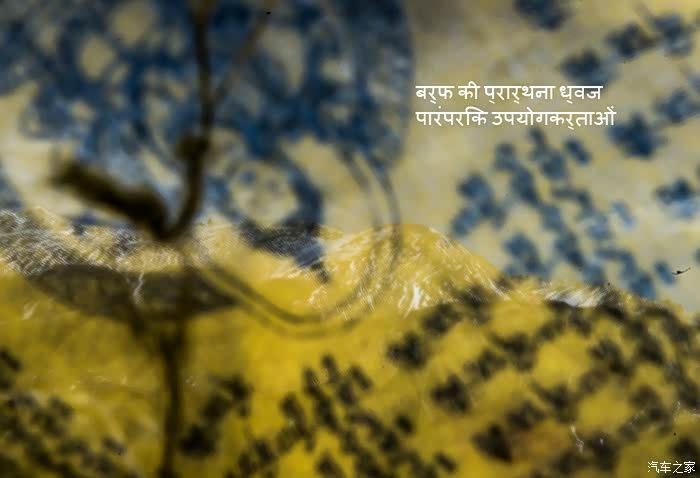 बर्फ की प्रार्थना ध्वज
पारंपरिक उपयोगकर्ताओं
汽车之家